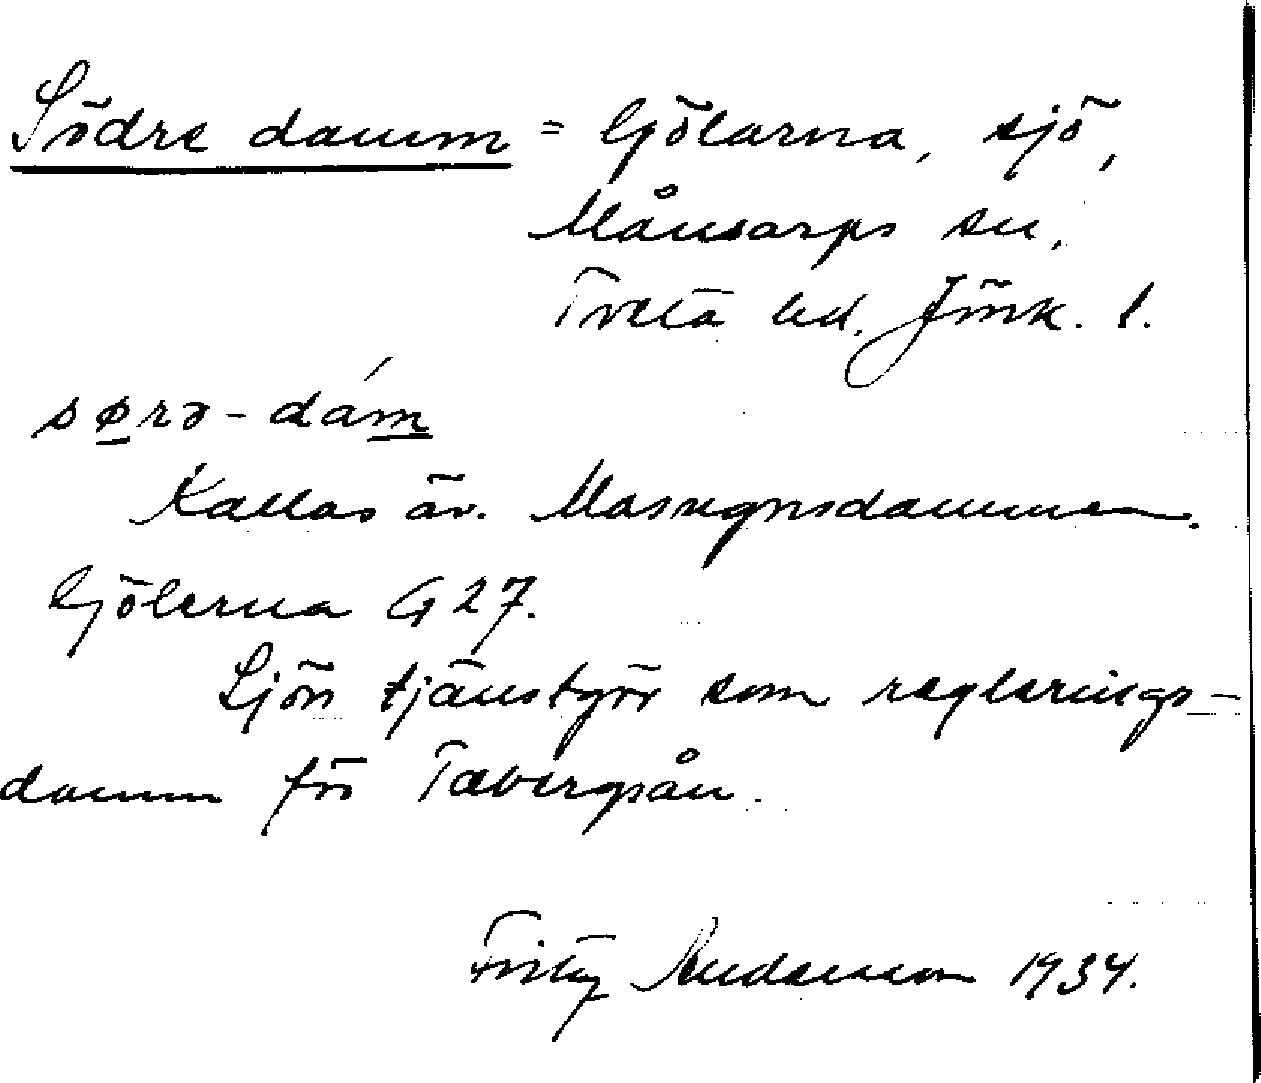 Södre damm = Gölarna, sjö,
Månsarps sn,
Tveta hd. Jönk. l.
sørə-dám
Kallas äv. Masugnsdammen.
Gölerna G 27.
Sjön tjänstgör som reglerings-
damm för Tabergsån.
Fritz Andersson 1934.